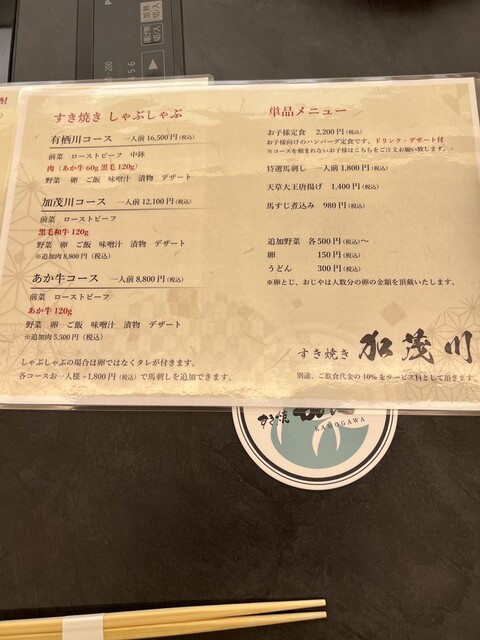 すき焼き しゃぶしゃぶ
有栖川コース 一人前 16,500円(税込)
前菜 ローストビーフ 中鉢
肉(あか牛60g 黒毛120g)
野菜 卵 ご飯 味噌汁 漬物 デザート
加茂川コース 一人前 12,100円(税込)
前菜 ローストビーフ
黒毛和牛120g
野菜 卵 ご飯 味噌汁 漬物 デザート
※追加肉 8,800円(税込)
あか牛コース 一人前 8,800円(税込)
前菜 ローストビーフ
あか牛120g
野菜 卵 ご飯 味噌汁 漬物 デザート
※追加肉 5,500円(税込)
しゃぶしゃぶの場合は卵ではなくタレが付きます。
各コースお一人様+1,800円(税込)で馬刺しを追加できます。
単品メニュー
お子様定食 2,200円(税込)
お子様向けのハンバーグ定食です。ドリンク・デザート付
※コースを頼まれないお子様はこちらをご注文お願い致します。
特選馬刺し 一人前 1,800円(税込)
天草大王唐揚げ 1,400円(税込)
馬すじ煮込み 980円(税込)
追加野菜 各500円(税込)〜
卵 150円(税込)
うどん 300円(税込)
※卵とじ、おじやは人数分の卵の金額を頂戴いたします。
すき焼き 加茂川
別途、ご飲食代金の10%をサービス料として頂きます。
すき焼
KAMOGAWA